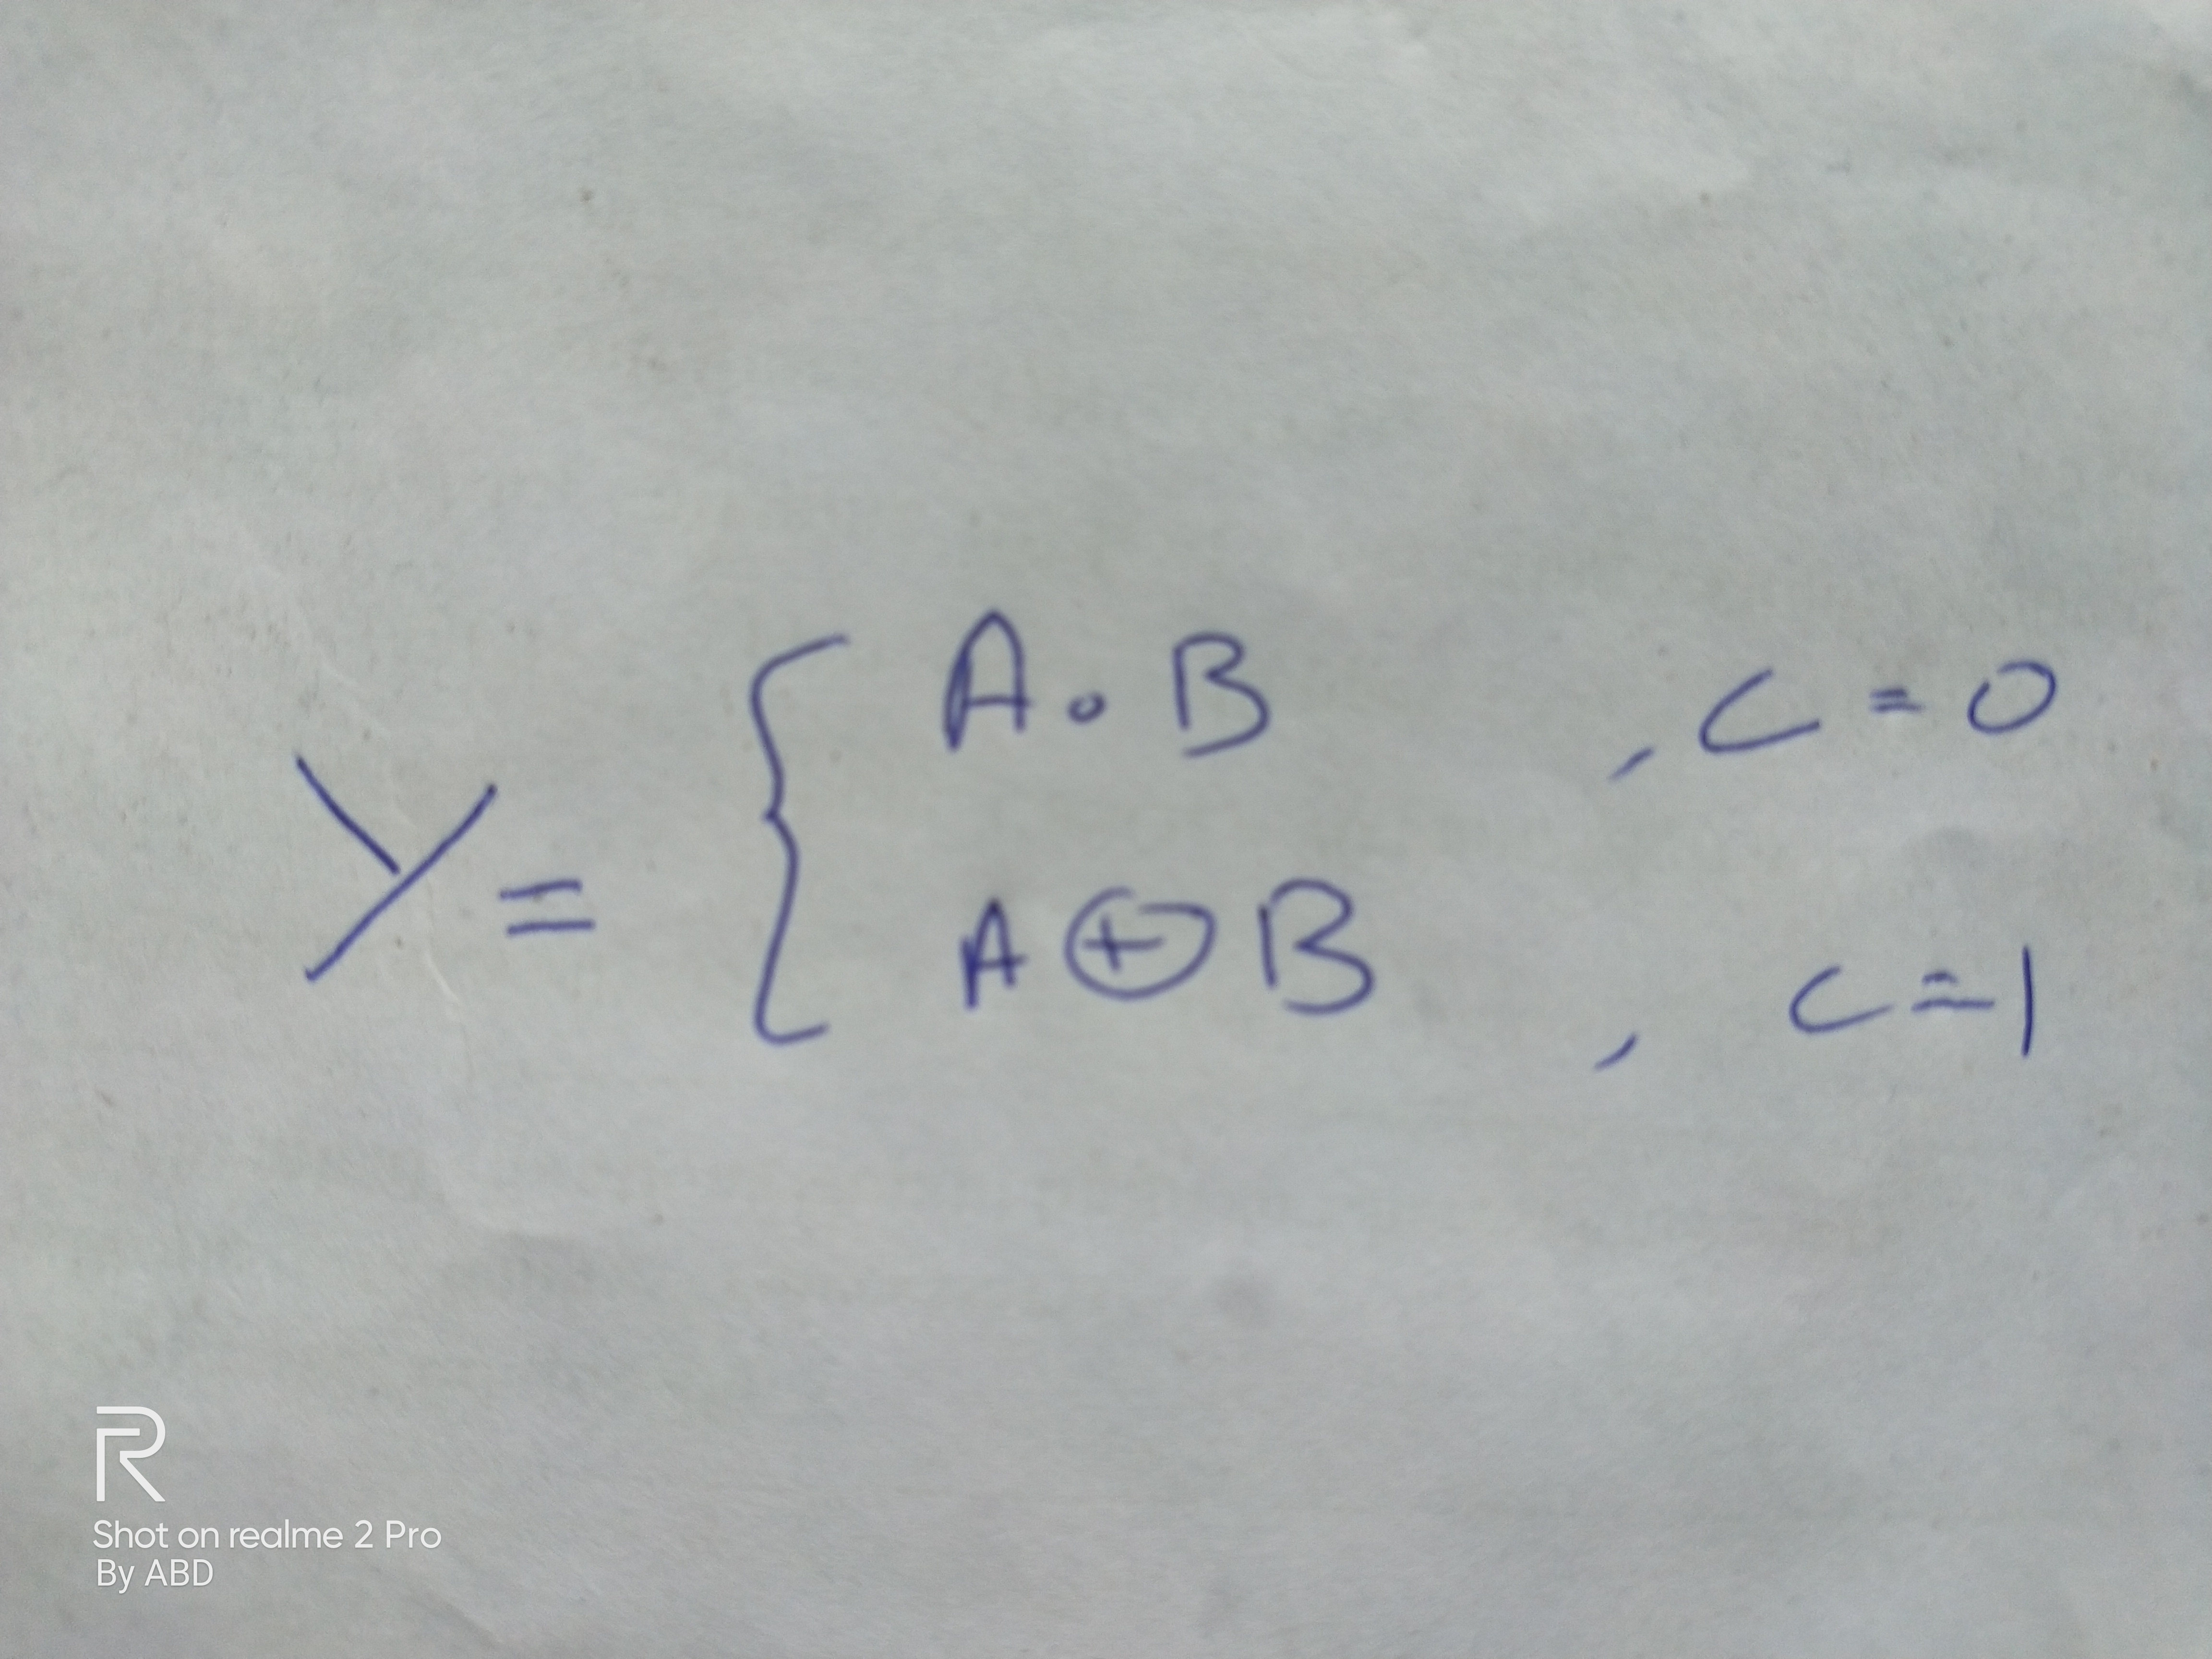 Y = { A . B , C = 0
A ⊕ B , C = 1
R
Shot on realme 2 Pro
By ABD